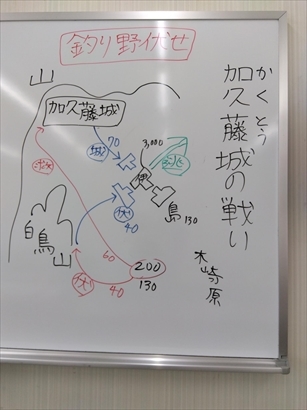 釣り野伏せ
かくとう
加久藤城の戦い
木崎原
山
加久藤城
70
城
3,000
伊
島 130
伏
40
白鳥山
60
200
130
伏
40